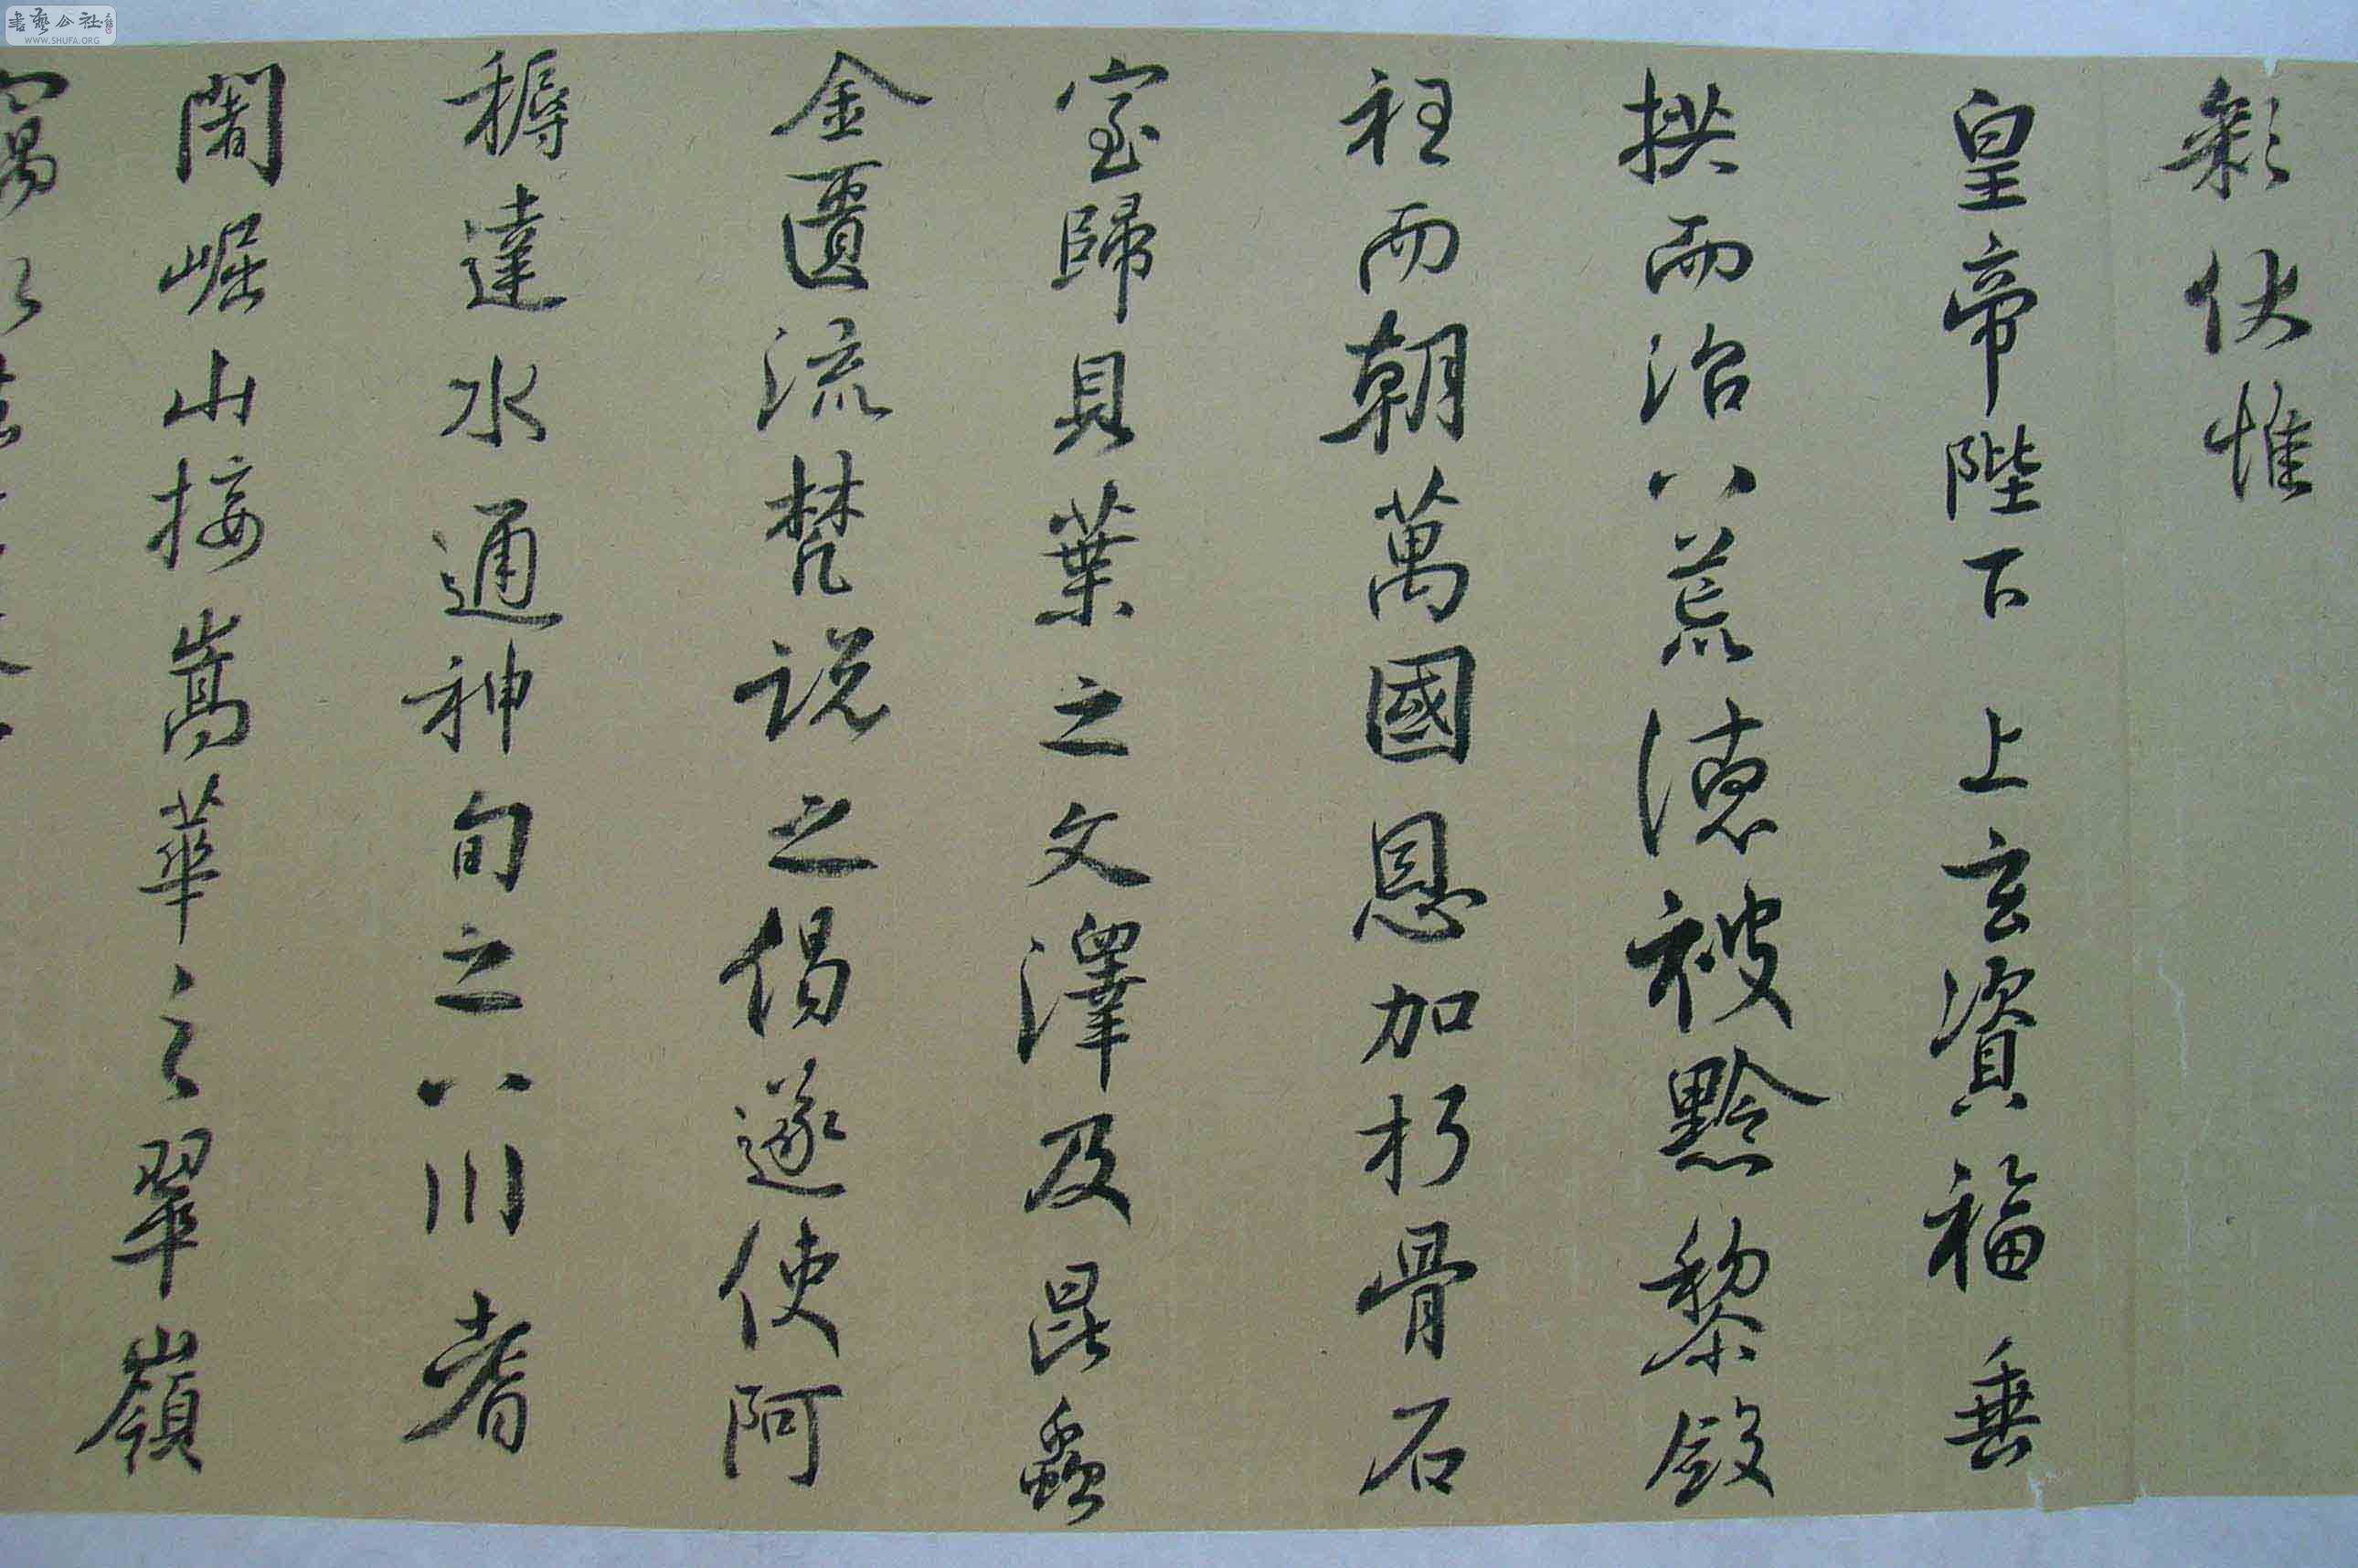 彩伏惟
皇帝陛下上玄資福垂
拱而治八荒德被黔黎斂
衽而朝萬國恩加朽骨石
室歸貝葉之文澤及昆蟲
金匱流梵說之偈遂使阿
耨達水通神甸之八川耆
闍崛山接嵩華之翠嶺
書藝公社
WWW.SHUFA.ORG